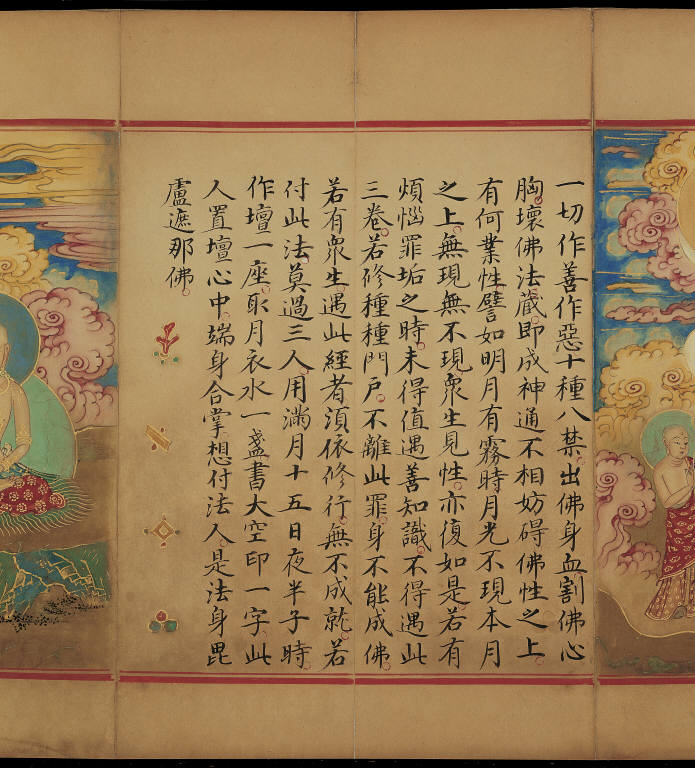 一切作善作惡十種八禁。出佛身血割佛心
胸。壞佛法藏。即成神通不相妨碍佛性之上。
有何業性譬如明月有霧時月光不現本月
之上。無現無不現眾生見性。亦復如是若有
煩惱罪垢之時。未得值遇善知識。不得遇此
三卷。若修種種門戶。不離此罪。身不能成佛。
若有眾生遇此經者須依修行。無不成就。若
付此法莫過三人。用滿月十五日夜半子時
作壇一座。取月衣水一盞書大空印一字此
人置壇心中。端身合掌。想付法人。是法身毘
盧遮那佛。